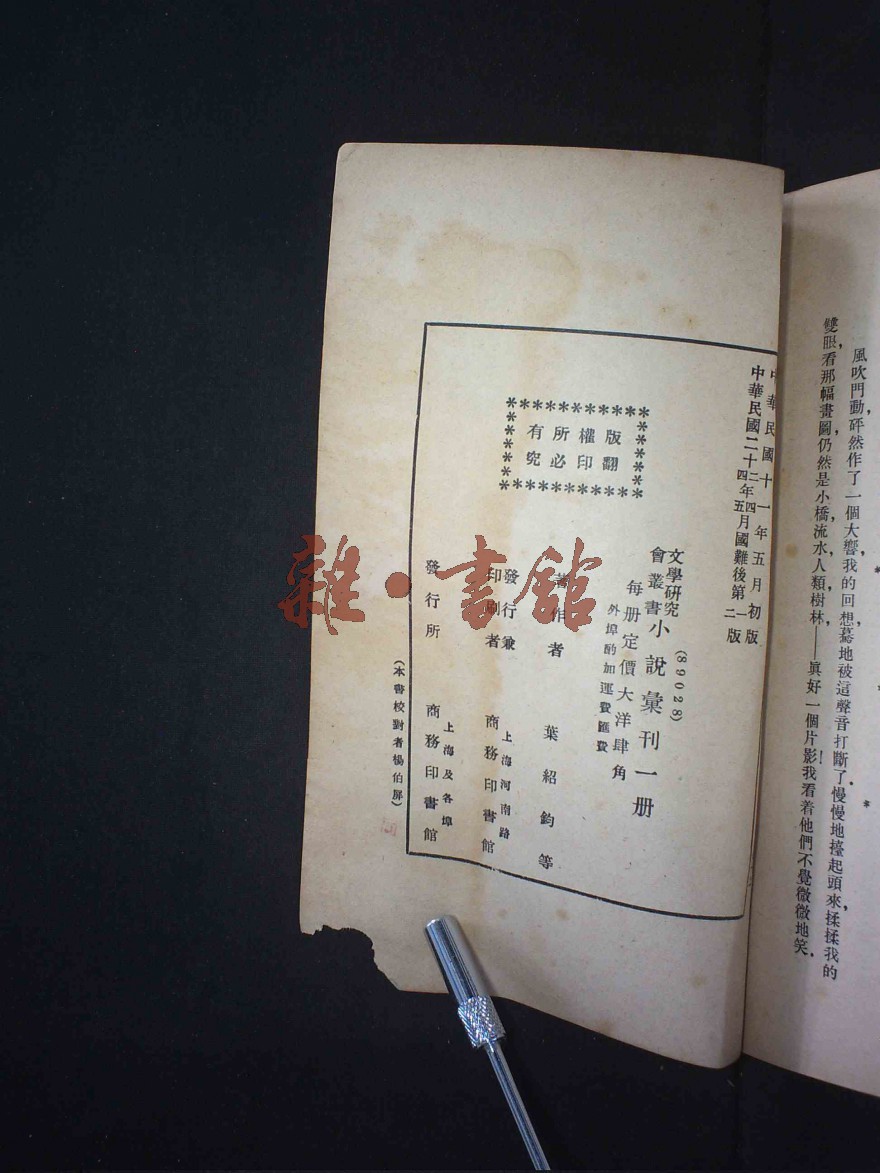 風吹門動，砰然作了一個大響，我的回想驀地被這聲音打斷了．慢慢地擡起頭來，揉揉我的
雙眼，看那幅畫圖，仍然是小橋，流水，人類，樹林，——眞好一個片影！我看着他們不覺微微地笑．
中華民國十一年五月初版
中華民國二十二年四月國難後第一版
四年五月二版
版權所有
翻印必究
(89028)
文學研究會叢書
小說彙刊一册
每册定價大洋肆角
外埠酌加運費匯費
著作者 葉紹鈞等
發行兼印刷者 上海河南路 商務印書館
發行所 上海及各埠 商務印書館
(本書校對者楊伯屏)
雜·書館